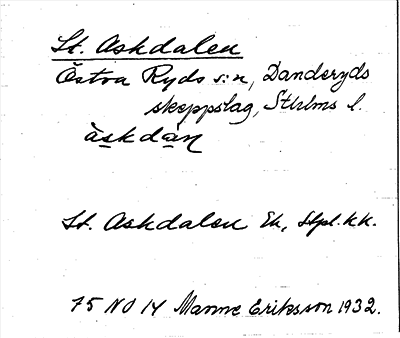 St. Askdalen
Östra Ryds s:n, Danderyds
skeppslag, Sthlms l.
àskdàn
St. Askdalen Ek, Stpl.kk.
75 NO 14 Manne Eriksson 1932.